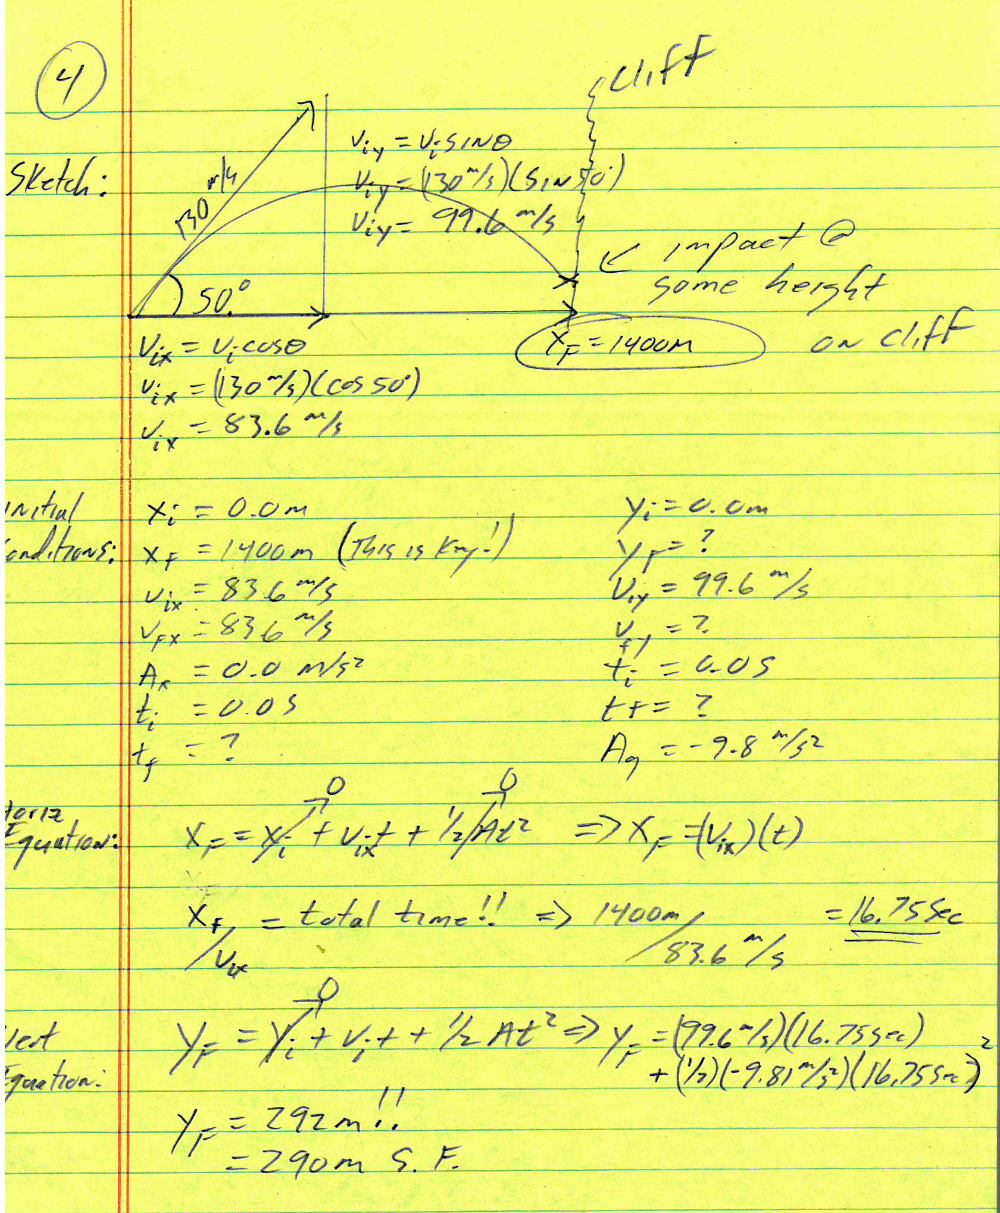 4
cliff
Sketch:
130 m/s
v_iy = v_i SINθ
v_iy = (130 m/s)(SIN 50°)
v_iy = 99.6 m/s
50°
impact @
some height
on cliff
X_F = 1400m
v_ix = v_i cosθ
v_ix = (130 m/s)(cos 50°)
v_ix = 83.6 m/s
initial
conditions:
x_i = 0.0m
x_F = 1400m (This is Key!)
v_ix = 83.6 m/s
v_Fx = 83.6 m/s
A_x = 0.0 m/s²
t_i = 0.0s
t_f = ?
y_i = 0.0m
y_F = ?
v_iy = 99.6 m/s
v_fy = ?
t_i = 0.0s
t_f = ?
A_g = -9.8 m/s²
Horiz
Equation:
0 0
X_F = X_i + v_ix t + 1/2 At² => X_F = (v_ix)(t)
X_f / v_ix = total time!! => 1400m / 83.6 m/s = 16.75 sec
0
Vert
Equation:
Y_F = Y_i + v_i t + 1/2 At² => Y_F = (99.6 m/s)(16.75 sec)
+ (1/2)(-9.81 m/s²)(16.75 sec)²
Y_F = 292m!!
= 290m S.F.